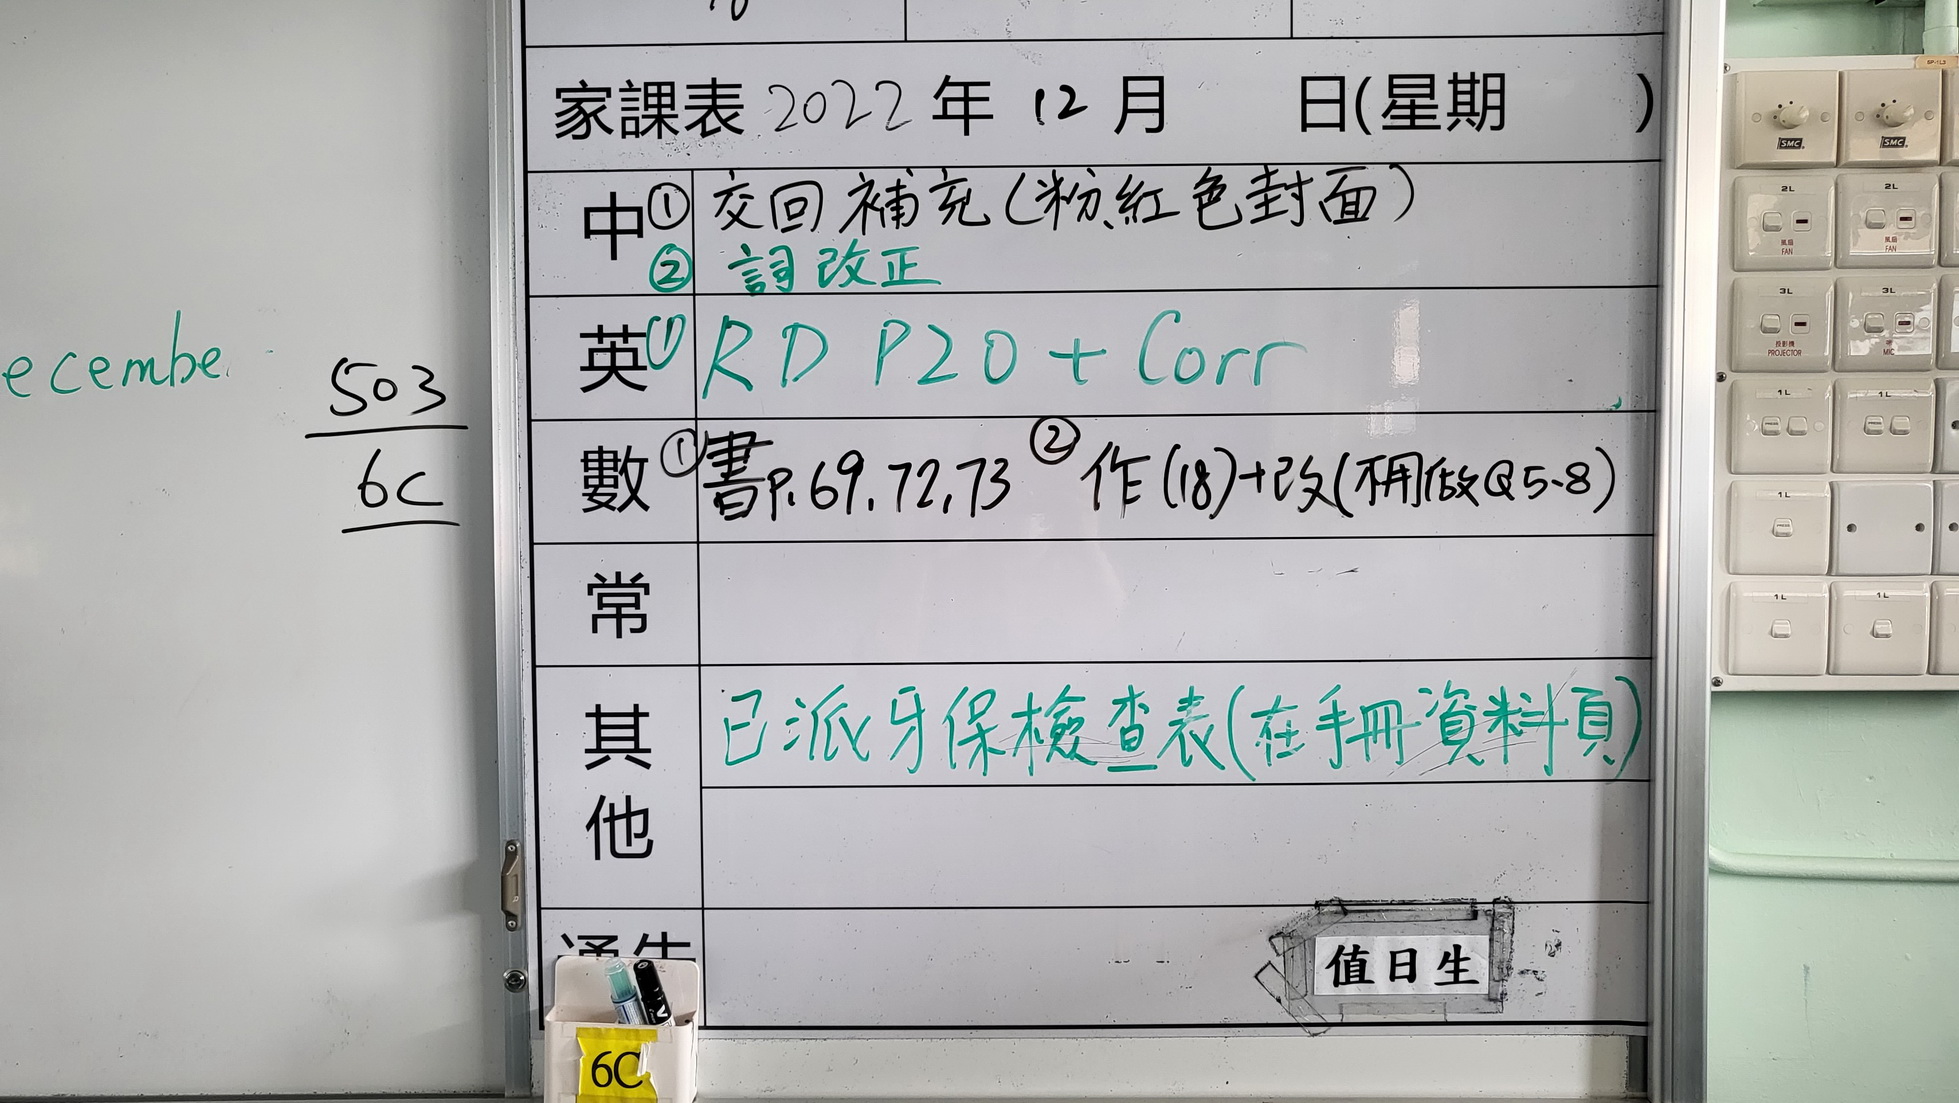 家課表 2022 年 12 月 日(星期 )
中 ① 交回補充(粉紅色封面)
② 詞改正
英 ① RD P20 + Corr
數 ① 書P.69,72,73 ② 作(18)+改(不用做Q5-8)
常
其他
已派牙保檢查表(在手冊資料頁)
通告
值日生
6C
ecembe
503
6C
SMC
SMC
2L
2L
風扇
FAN
風扇
FAN
3L
3L
投影機
PROJECTOR
MIC
1L
1L
1L
1L
1L